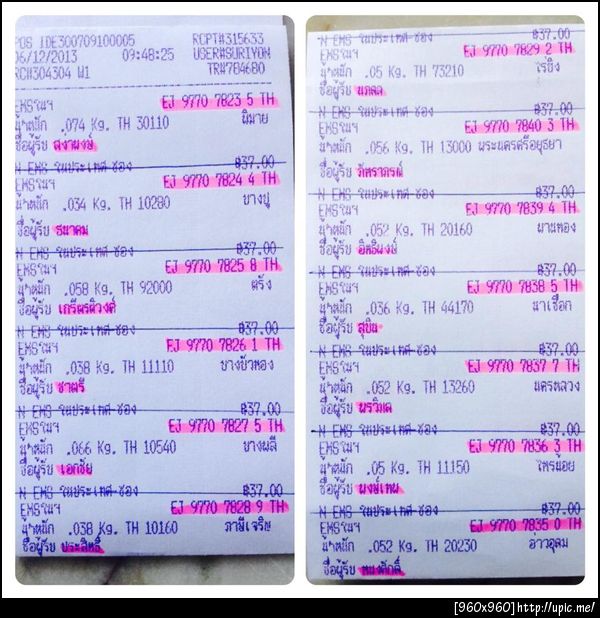 POS IDE300709100005 RCPT#315633
06/12/2013 09:48:25 USER#SURIYON
RC#304304 W1 TR#784680
EMSในฯ EJ 9770 7823 5 TH
น้ำหนัก .074 Kg. TH 30110 พิมาย
ชื่อผู้รับ สงาพงษ์
N EMS ในประเทศ-ซอง ฿37.00
EMSในฯ EJ 9770 7824 4 TH
น้ำหนัก .034 Kg. TH 10280 บางปู
ชื่อผู้รับ ธนาคม
N EMS ในประเทศ-ซอง ฿37.00
EMSในฯ EJ 9770 7825 8 TH
น้ำหนัก .058 Kg. TH 92000 ตรัง
ชื่อผู้รับ เกรีตรติวงค์
N EMS ในประเทศ-ซอง ฿37.00
EMSในฯ EJ 9770 7826 1 TH
น้ำหนัก .038 Kg. TH 11110 บางบัวทอง
ชื่อผู้รับ ชาตรี
N EMS ในประเทศ-ซอง ฿37.00
EMSในฯ EJ 9770 7827 5 TH
น้ำหนัก .066 Kg. TH 10540 บางพลี
ชื่อผู้รับ เอกชัย
N EMS ในประเทศ-ซอง ฿37.00
EMSในฯ EJ 9770 7828 9 TH
น้ำหนัก .038 Kg. TH 10160 ภาษีเจริญ
ชื่อผู้รับ ประสิทธิ์
N EMS ในประเทศ-ซอง ฿37.00
EMSในฯ EJ 9770 7829 2 TH
น้ำหนัก .05 Kg. TH 73210 ไร่ขิง
ชื่อผู้รับ นภดล
N EMS ในประเทศ-ซอง ฿37.00
EMSในฯ EJ 9770 7840 3 TH
น้ำหนัก .056 Kg. TH 13000 พระนครศรีอยุธยา
ชื่อผู้รับ ภัทราภรณ์
N EMS ในประเทศ-ซอง ฿37.00
EMSในฯ EJ 9770 7839 4 TH
น้ำหนัก .052 Kg. TH 20160 พานทอง
ชื่อผู้รับ อิทธิพงษ์
N EMS ในประเทศ-ซอง ฿37.00
EMSในฯ EJ 9770 7838 5 TH
น้ำหนัก .036 Kg. TH 44170 นาเชือก
ชื่อผู้รับ สุบิน
N EMS ในประเทศ-ซอง ฿37.00
EMSในฯ EJ 9770 7837 7 TH
น้ำหนัก .052 Kg. TH 13260 นครหลวง
ชื่อผู้รับ พรวิมล
N EMS ในประเทศ-ซอง ฿37.00
EMSในฯ EJ 9770 7836 3 TH
น้ำหนัก .05 Kg. TH 11150 ไทรน้อย
ชื่อผู้รับ พงษ์เทพ
N EMS ในประเทศ-ซอง ฿37.00
EMSในฯ EJ 9770 7835 0 TH
น้ำหนัก .052 Kg. TH 20230 อ่าวอุดม
ชื่อผู้รับ
[960x960]http://upic.me/